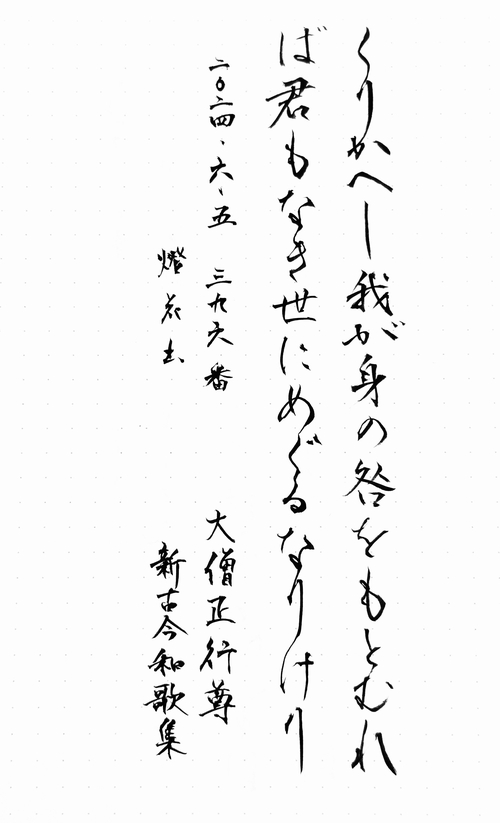 くりかへし我が身の咎をもとむれ
ば君もなき世にめぐるなりけり
二〇二四、六、五 三九六番
大僧正行尊
燈花去
新古今和歌集